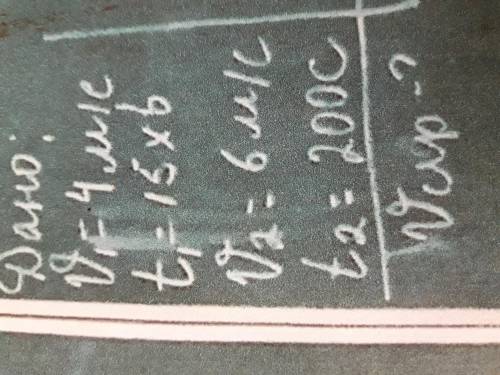 Дано:
V₁=4 м/с
t₁=15 хв
V₂=6 м/с
t₂=200 с
Vсер-?